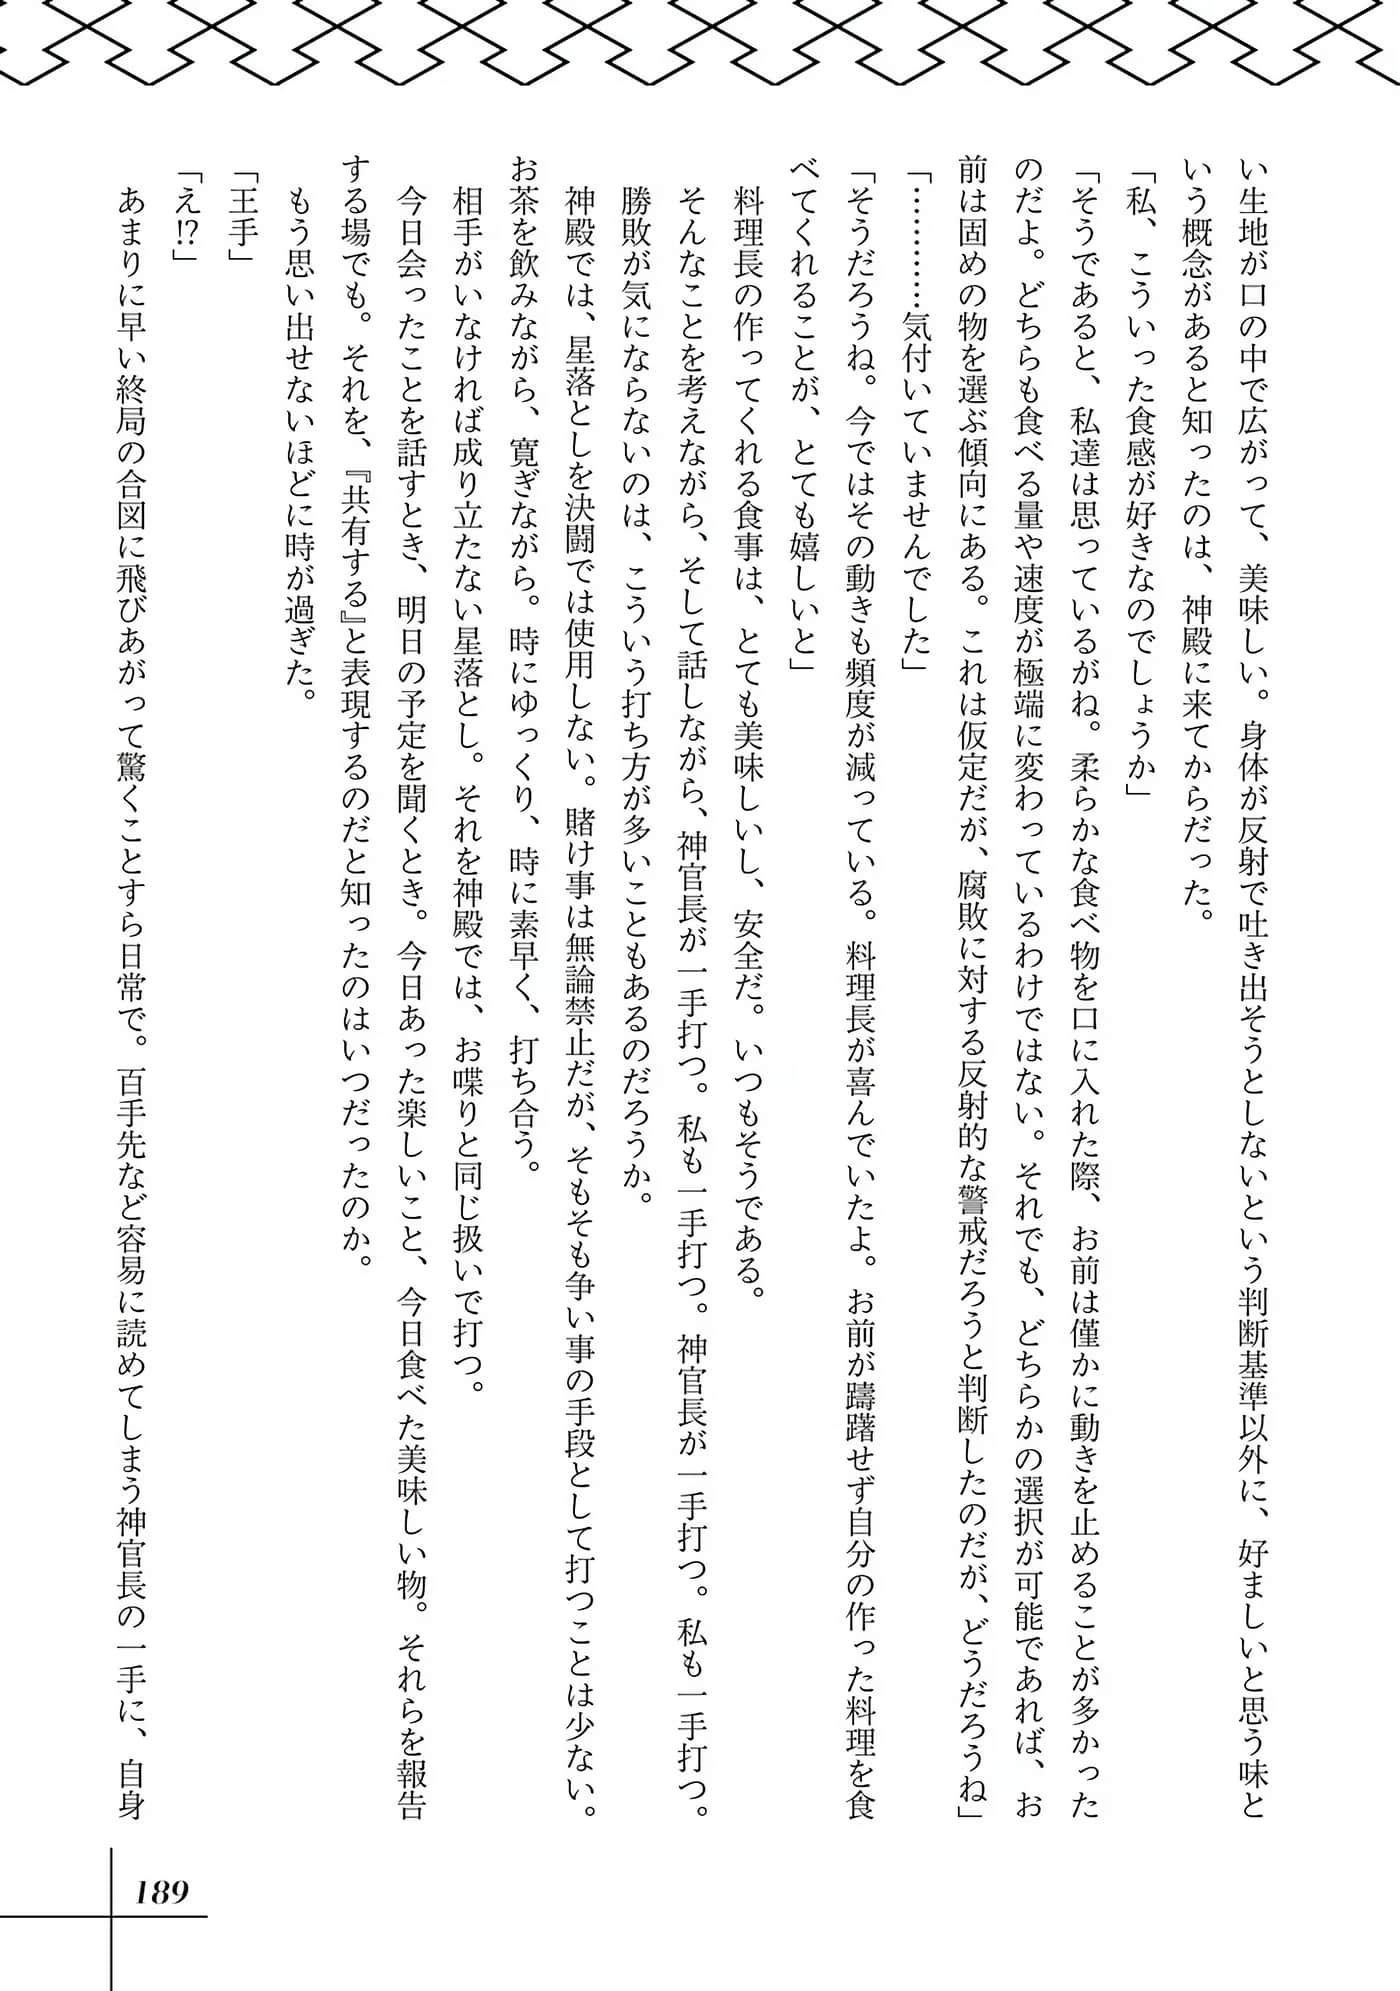 い生地が口の中で広がって、美味しい。身体が反射で吐き出そうとしないという判断基準以外に、好ましいと思う味と
いう概念があると知ったのは、神殿に来てからだった。
「私、こういった食感が好きなのでしょうか」
「そうであると、私達は思っているがね。柔らかな食べ物を口に入れた際、お前は僅かに動きを止めることが多かった
のだよ。どちらも食べる量や速度が極端に変わっているわけではない。それでも、どちらかの選択が可能であれば、お
前は固めの物を選ぶ傾向にある。これは仮定だが、腐敗に対する反射的な警戒だろうと判断したのだが、どうだろうね」
「…………気付いていませんでした」
「そうだろうね。今ではその動きも頻度が減っている。料理長が喜んでいたよ。お前が躊躇せず自分の作った料理を食
べてくれることが、とても嬉しいと」
　料理長の作ってくれる食事は、とても美味しいし、安全だ。いつもそうである。
　そんなことを考えながら、そして話しながら、神官長が一手打つ。私も一手打つ。神官長が一手打つ。私も一手打つ。
　勝敗が気にならないのは、こういう打ち方が多いこともあるのだろうか。
　神殿では、星落としを決闘では使用しない。賭け事は無論禁止だが、そもそも争い事の手段として打つことは少ない。
お茶を飲みながら、寛ぎながら。時にゆっくり、時に素早く、打ち合う。
　相手がいなければ成り立たない星落とし。それを神殿では、お喋りと同じ扱いで打つ。
　今日会ったことを話すとき、明日の予定を聞くとき。今日あった楽しいこと、今日食べた美味しい物。それらを報告
する場でも。それを、『共有する』と表現するのだと知ったのはいつだったのか。
　もう思い出せないほどに時が過ぎた。
「王手」
「え⁉」
　あまりに早い終局の合図に飛びあがって驚くことすら日常で。百手先など容易に読めてしまう神官長の一手に、自身
189